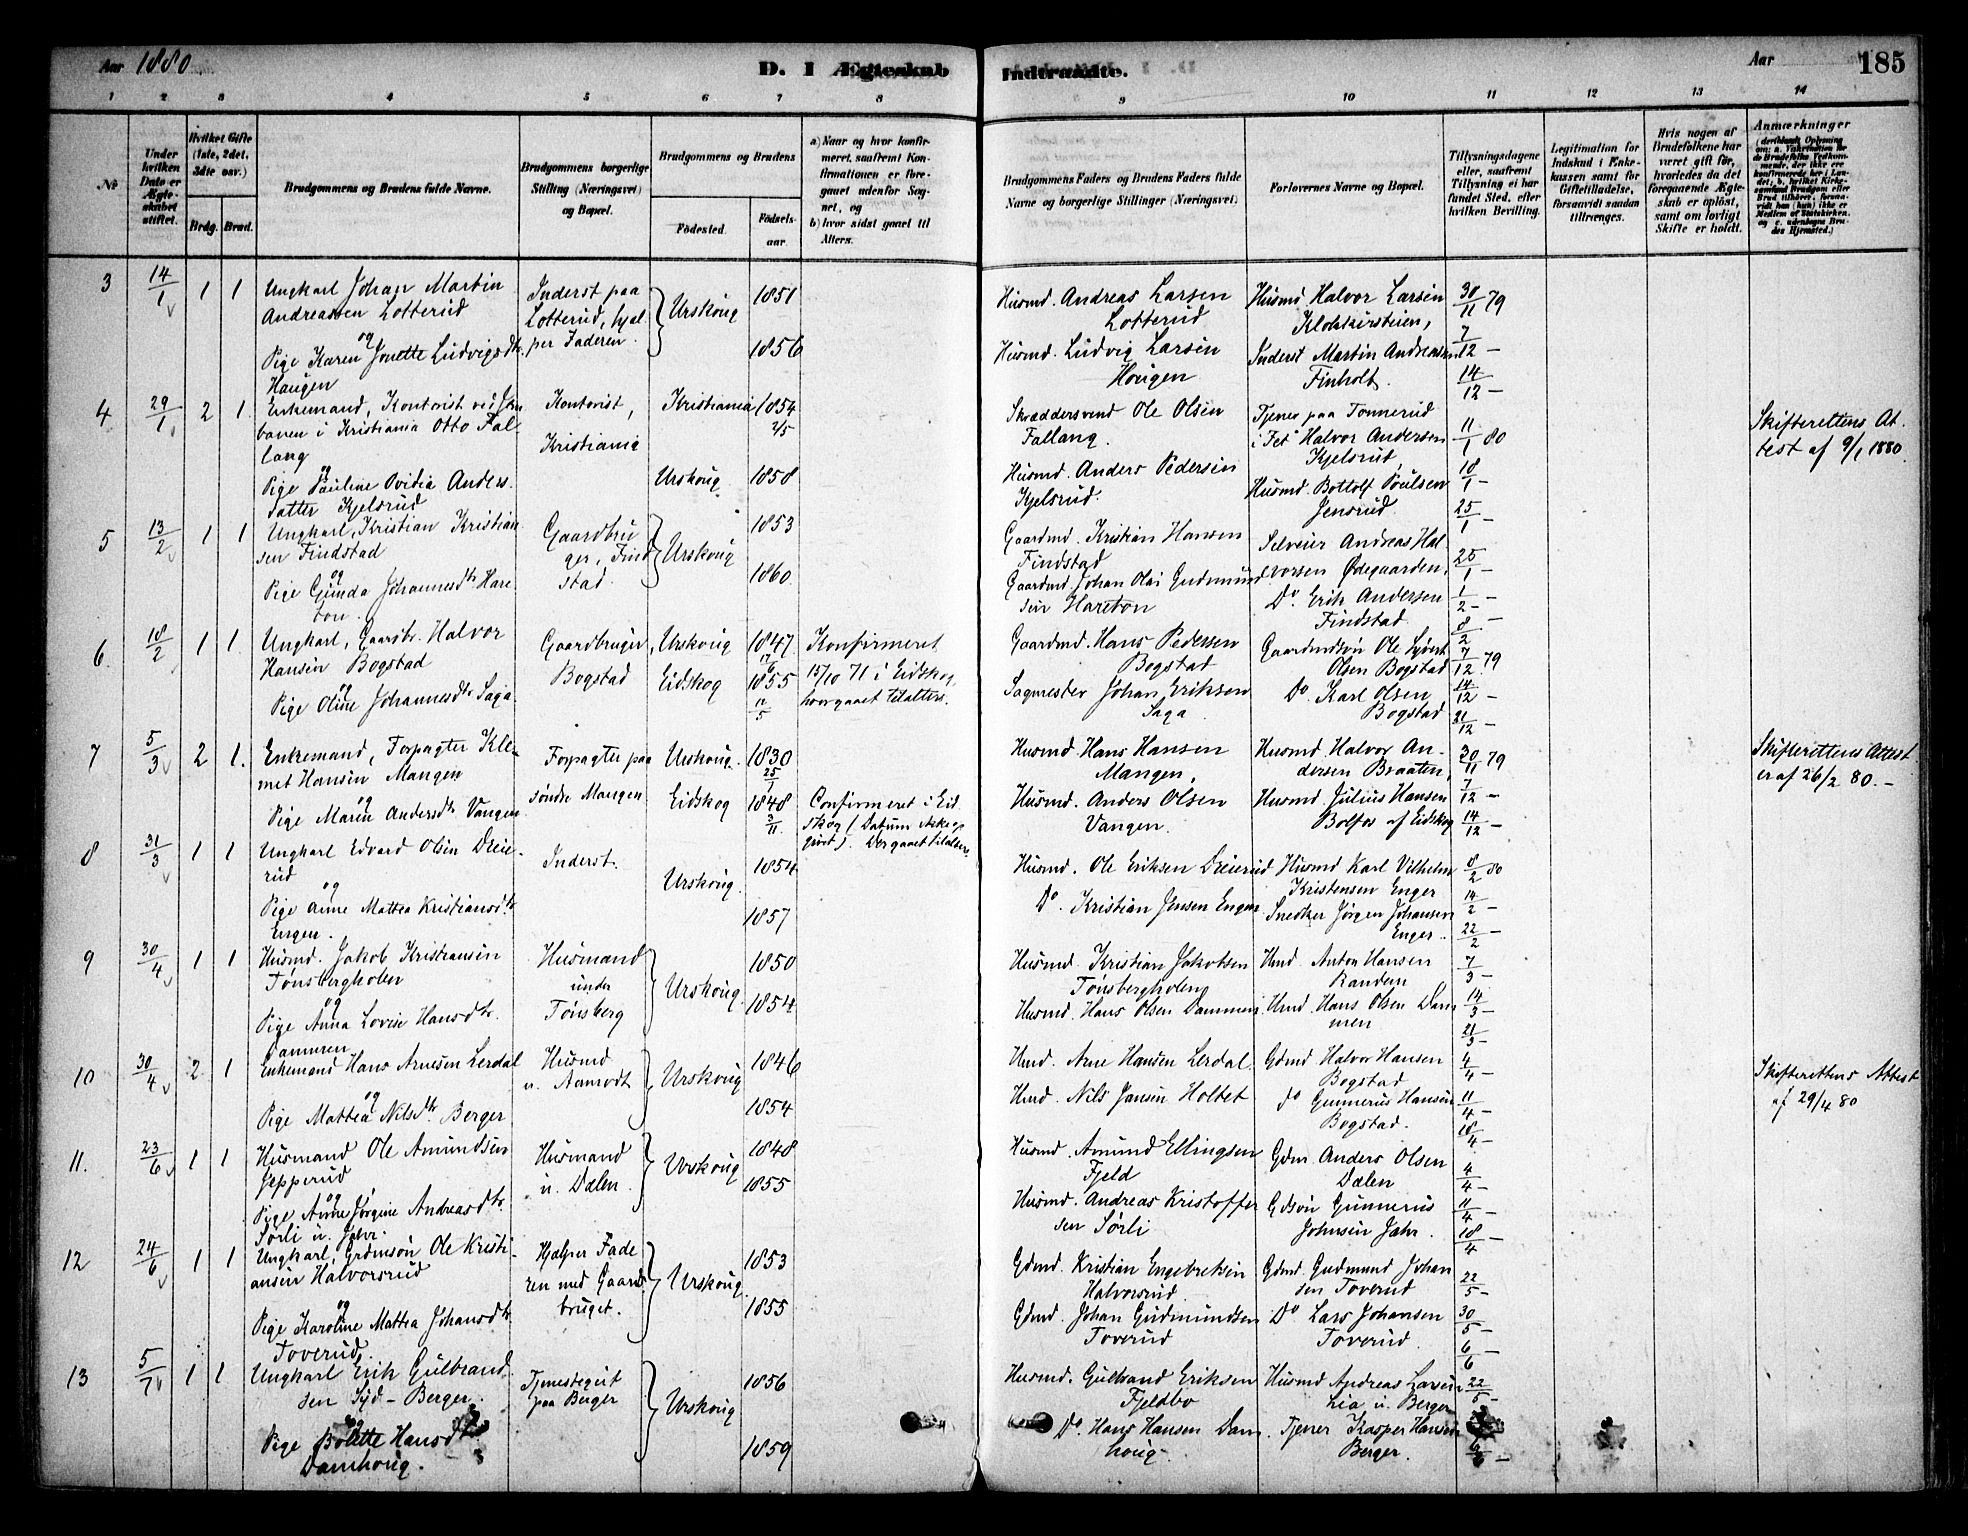 Aar 1880.
D. I Ægteskab Indtraadte.
Aar
185
1 2 3 4 5 6 7 8 9 10 11 12 13 14
№
Under hvilken Dato er Ægteskabet stiftet.
Hvilket Gifte (1ste, 2det, 3die osv.)
Brdg. Brud.
Brudgommens og Brudens fulde Navne.
Brudgommens borgerlige Stilling (Næringsvei) og Bopæl.
Brudgommens og Brudens
Födested.
Födsels-aar.
a) Naar og hvor konfirmeret, saafremt Konfirmationen er foregaaet udenfor Sognet, og
b) hvor sidst gaaet til Alters.
Brudgommens Faders og Brudens Faders fulde Navne og borgerlige Stillinger (Næringsvei)
Forlovernes Navne og Bopæl.
Tillysningsdagene eller, saafremt Tillysning ei har fundet Sted, efter hvilken Bevilling.
Legitimation for Indskud i Enkekassen samt for Giftetilladelse, forsaavidt saadan tiltrænges.
Hvis nogen af Brudefolkene har været gift för, hvorledes da det foregaaende Ægteskab er oplöst, samt om lovligt Skifte er holdt.
Anmærkninger
3 14/1 1 1
Ungkarl Johan Martin
Andreassen Lotterud
og
Pige Karen Jonette Ludvigsdtr.
Haugen
Inderst paa
Lotterud, hjæl
per Faderen.
Urskoug
1851
1856
Husmd. Andreas Larsen
Lotterud
Husmd. Ludvig Larsen
Hougen
Husmd Halvor Larsen
Klokkerstuen,
Inderst Martin Andreassen
Finholt.
30/11 79
7/12 –
14/12 –
4 29/1 2 1.
Enkemand, Kontorist ved Jern
banen i Kristiania Otto Fal-
lang
og
Pige Pauline Ovidia Anders
datter Kjelsrud
Kontorist,
Kristiania
Kristiania
Urskoug
1854
2/5
1858
Skræddersvend Ole Olsen
Fallang.
Husmd. Anders Pedersen
Kjelsrud.
Tjener paa Tonnerud
i Fet Halvor Andersen
Kjelsrud,
Husmd. Bottolf Poulsen
Jensrud.
11/1 80
18/1 –
25/1 –
Skifterettens At
test af 9/1 1880.
5 13/2 1 1
Ungkarl, Kristian Kristian
sen Findstad
og
Pige Gunda Johannesdtr Hare
ton.
Gaardbru
ger, Find
stad.
Urskoug
1853
1860
Gaardmd. Kristian Hansen
Findstad
Gaardmd Johan Olai Gudmund
sen Hareton
Selveier Andreas Hal
vorsen Ødegaarden,
Do. Erik Andersen
Findstad
25/1 –
1/2 –
8/2 –
6 18/2 1 1.
Ungkarl, Gaardbr. Halvor
Hansen Bogstad
og
Pige Oline Johannesdtr Saga
Gaardbruger,
Bogstad
Urskoug
Eidskog
1847
17/6
1855
12/5
Konfirmeret
15/10 71 i Eidskog,
hvorgaaet tilalters.
Gaardmd. Hans Pedersen
Bogstad
Sagmester Johan Eriksen
Saga.
Gaardmdsøn Ole Syvert
Olsen Bogstad
Do Karl Olsen
Bogstad
7/12 79
14/12 –
21/12 –
7 5/3 2 1.
Enkemand, Forpagter Kle-
met Hansen Mangen
og
Pige Marin Andersdtr Vangen
Forpagter paa
søndre Mangen
Urskoug.
Eidskog
1830
25/7
1848
3/11
Confirmeret i Eid
skog (Datum ikke op
givet). Der gaaet tilalters.
Husmd. Hans Hansen
Mangen,
Husmd. Anders Olsen
Vangen.
Husmd Halvor An-
dersen Braaten,
Husmd Julius Hansen
Bolfos af Eidskog
30/11 79
7/12 –
14/12 –
Skifterettens Attest
er af 26/2 80. –
8 31/3 1 1
Ungkarl Edvard Olsen Dreie-
rud
og
Pige Anne Mattea Kristiansdtr
Engen.
Inderst.
Urskoug.
1854
1857
Husmd. Ole Eriksen Dreierud
Do. Kristian Jensen Enger
Husmd Karl Vilhelm
Kristensen Enger
Snedker Jørgen Johansen
Enger.
8/2 80
14/2 –
22/2 –
9 30/4 1 1
Husmd. Jakob Kristiansen
Tønsbergholen
og
Pige Anna Lovise Hansdtr.
Dammen
Husmand
under
Tønsberg
Urskoug.
1850
1854
Husmd. Kristian Jakobsen
Tønsbergholen
Husmd. Hans Olsen Dammen
Hmd. Anton Hansen
Randem,
Hmd. Hans Olsen Dam
men
7/3 –
14/3 –
21/3 –
10 30/4 2 1
Enkemand Hans Arnesen Lerdal
og
Pige Mattea Nilsdtr Berger
Husmd
u. Aamodt
Urskoug
1846
1854
Hmd. Arne Hansen Lerdal.
Hmd. Nils Jansen Holtet
Gdmd Halvor Hansen
Bogstad
do Gunnerus Hansen
Bogstad.
4/4 –
11/4 –
18/4 –
Skifterettens Attest
af 29/4 80
11. 23/6 1 1
Husmand Ole Amundsen
Jepperud
og
Pige Anne Jørgine Andreasdtr
Sørli u. Jahr.
Husmand
u. Dælen.
Urskoug
1848
1855
Husmd. Amund Ellingsen
Fjeld
Husmd. Andreas Kristoffer
sen Sørli
Gdm. Anders Olsen
Dælen
Gdsøn Gunnerus
Johnsen Jahr.
4/4 –
11/4 –
18/4 –
12 24/6 1 1
Ungkarl, Grdmsøn Ole Kristi-
ansen Halvorsrud
og
Pige Karoline Mattea Johansdtr
Toverud,
Hjælper Fade
ren med Gaards
bruget.
Urskoug.
1853
1855
Gdmd. Kristian Engebretsen
Halvorsrud.
Gdmd. Johan Gudmundsen
Toverud
Gdmd Gudmund Johan
sen Toverud
Do Lars Johansen
Toverud.
22/5 –
30/5 –
6/6 –
13 5/7 1 1
Ungkarl Erik Gulbrand
sen Syd-Berger.
og
Pige Bolette Hansdtr
Damhoug.
Tjenestegut
paa Berger
Urskoug
1856
1859
Husmd. Gulbrand Eriksen
Fjeldbo
Do. Hans Hansen Dam
houg.
Husmd Andreas Larsen
Lia u. Berger
Tjener Kasper Hansen
Berger.
22/5 –
6/6 –